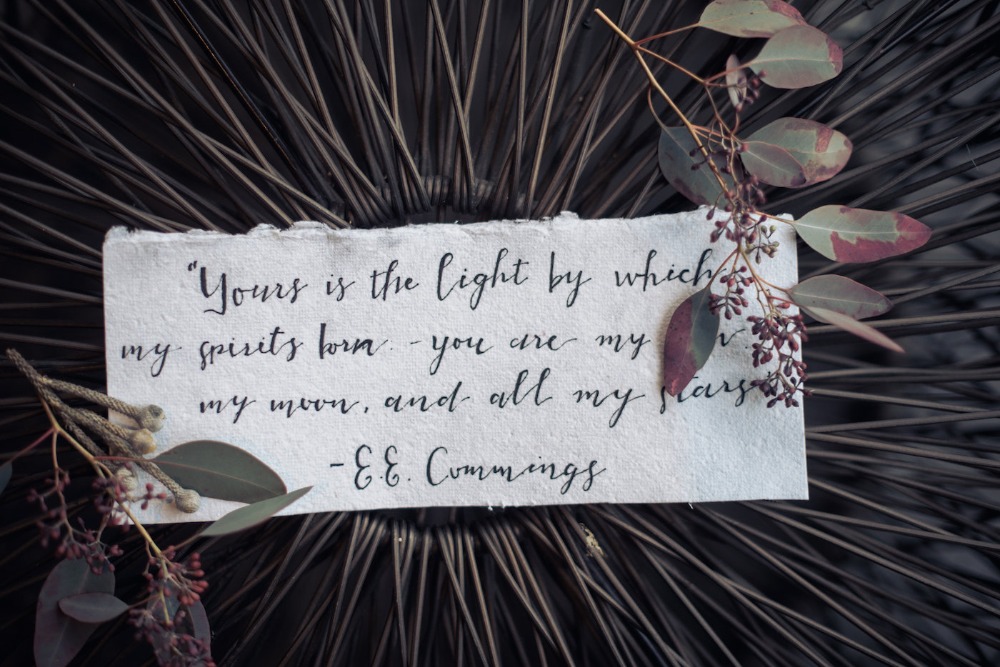 "Yours is the light by which
my spirits born. - you are my
my moon, and all my stars
- E.E. Cummings